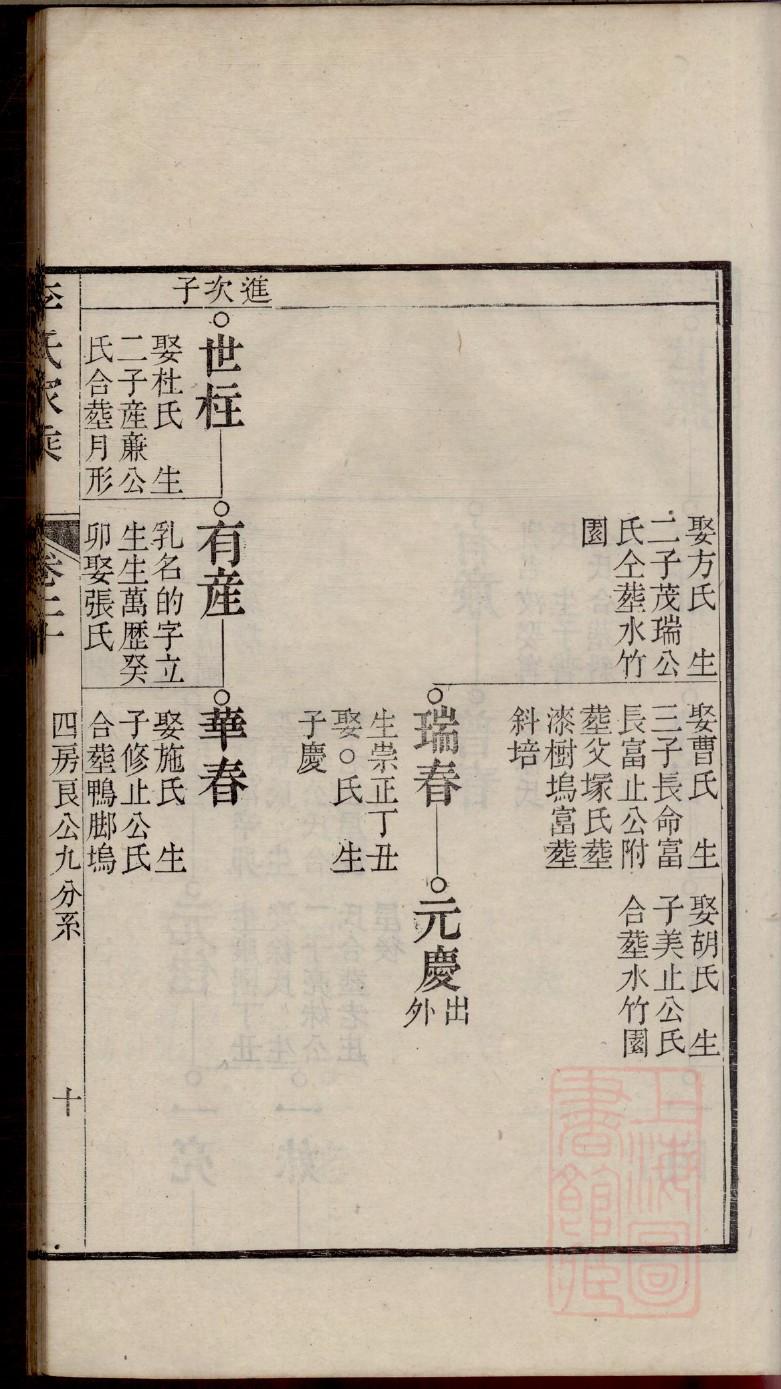 娶方氏　生
二子茂瑞公
氏仝塟水竹
園
娶曹氏　生
三子長命富
長富止公附
塟父塚氏塟
漆樹塢富塟
斜培
娶胡氏　生
子美止公氏
合塟水竹園
瑞春
生崇正丁丑
娶○氏　生
子慶
元慶
出
外
進次子
世柱
娶杜氏　生
二子産亷公
氏合塟月形
有産
乳名的字立
生生萬歷癸
卯娶張氏
華春
娶施氏　生
子修止公氏
合塟鴨脚塢
李氏家乘
卷二十
四房艮公九分系
十
上海圖
書館藏